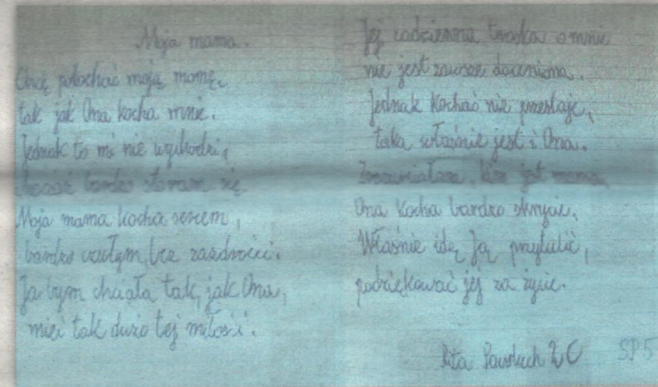 Moja mama.
Chcę pokochać moją mamę,
tak jak Ona kocha mnie.
Jednak to mi nie wychodzi,
chociaż bardzo staram się.
Moja mama kocha sercem,
bardzo czułym, bez zazdrości.
Ja bym chciała tak, jak Ona,
mieć tak dużo tej miłości.
Jej codzienna troska o mnie
nie jest zawsze doceniona.
Jednak kochać nie przestaje,
taka właśnie jest i Ona.
Zrozumiałam, kim jest mama,
Ona kocha bardzo skrycie.
Właśnie idę Ją przytulić,
podziękować jej za życie.
2 C SP 5